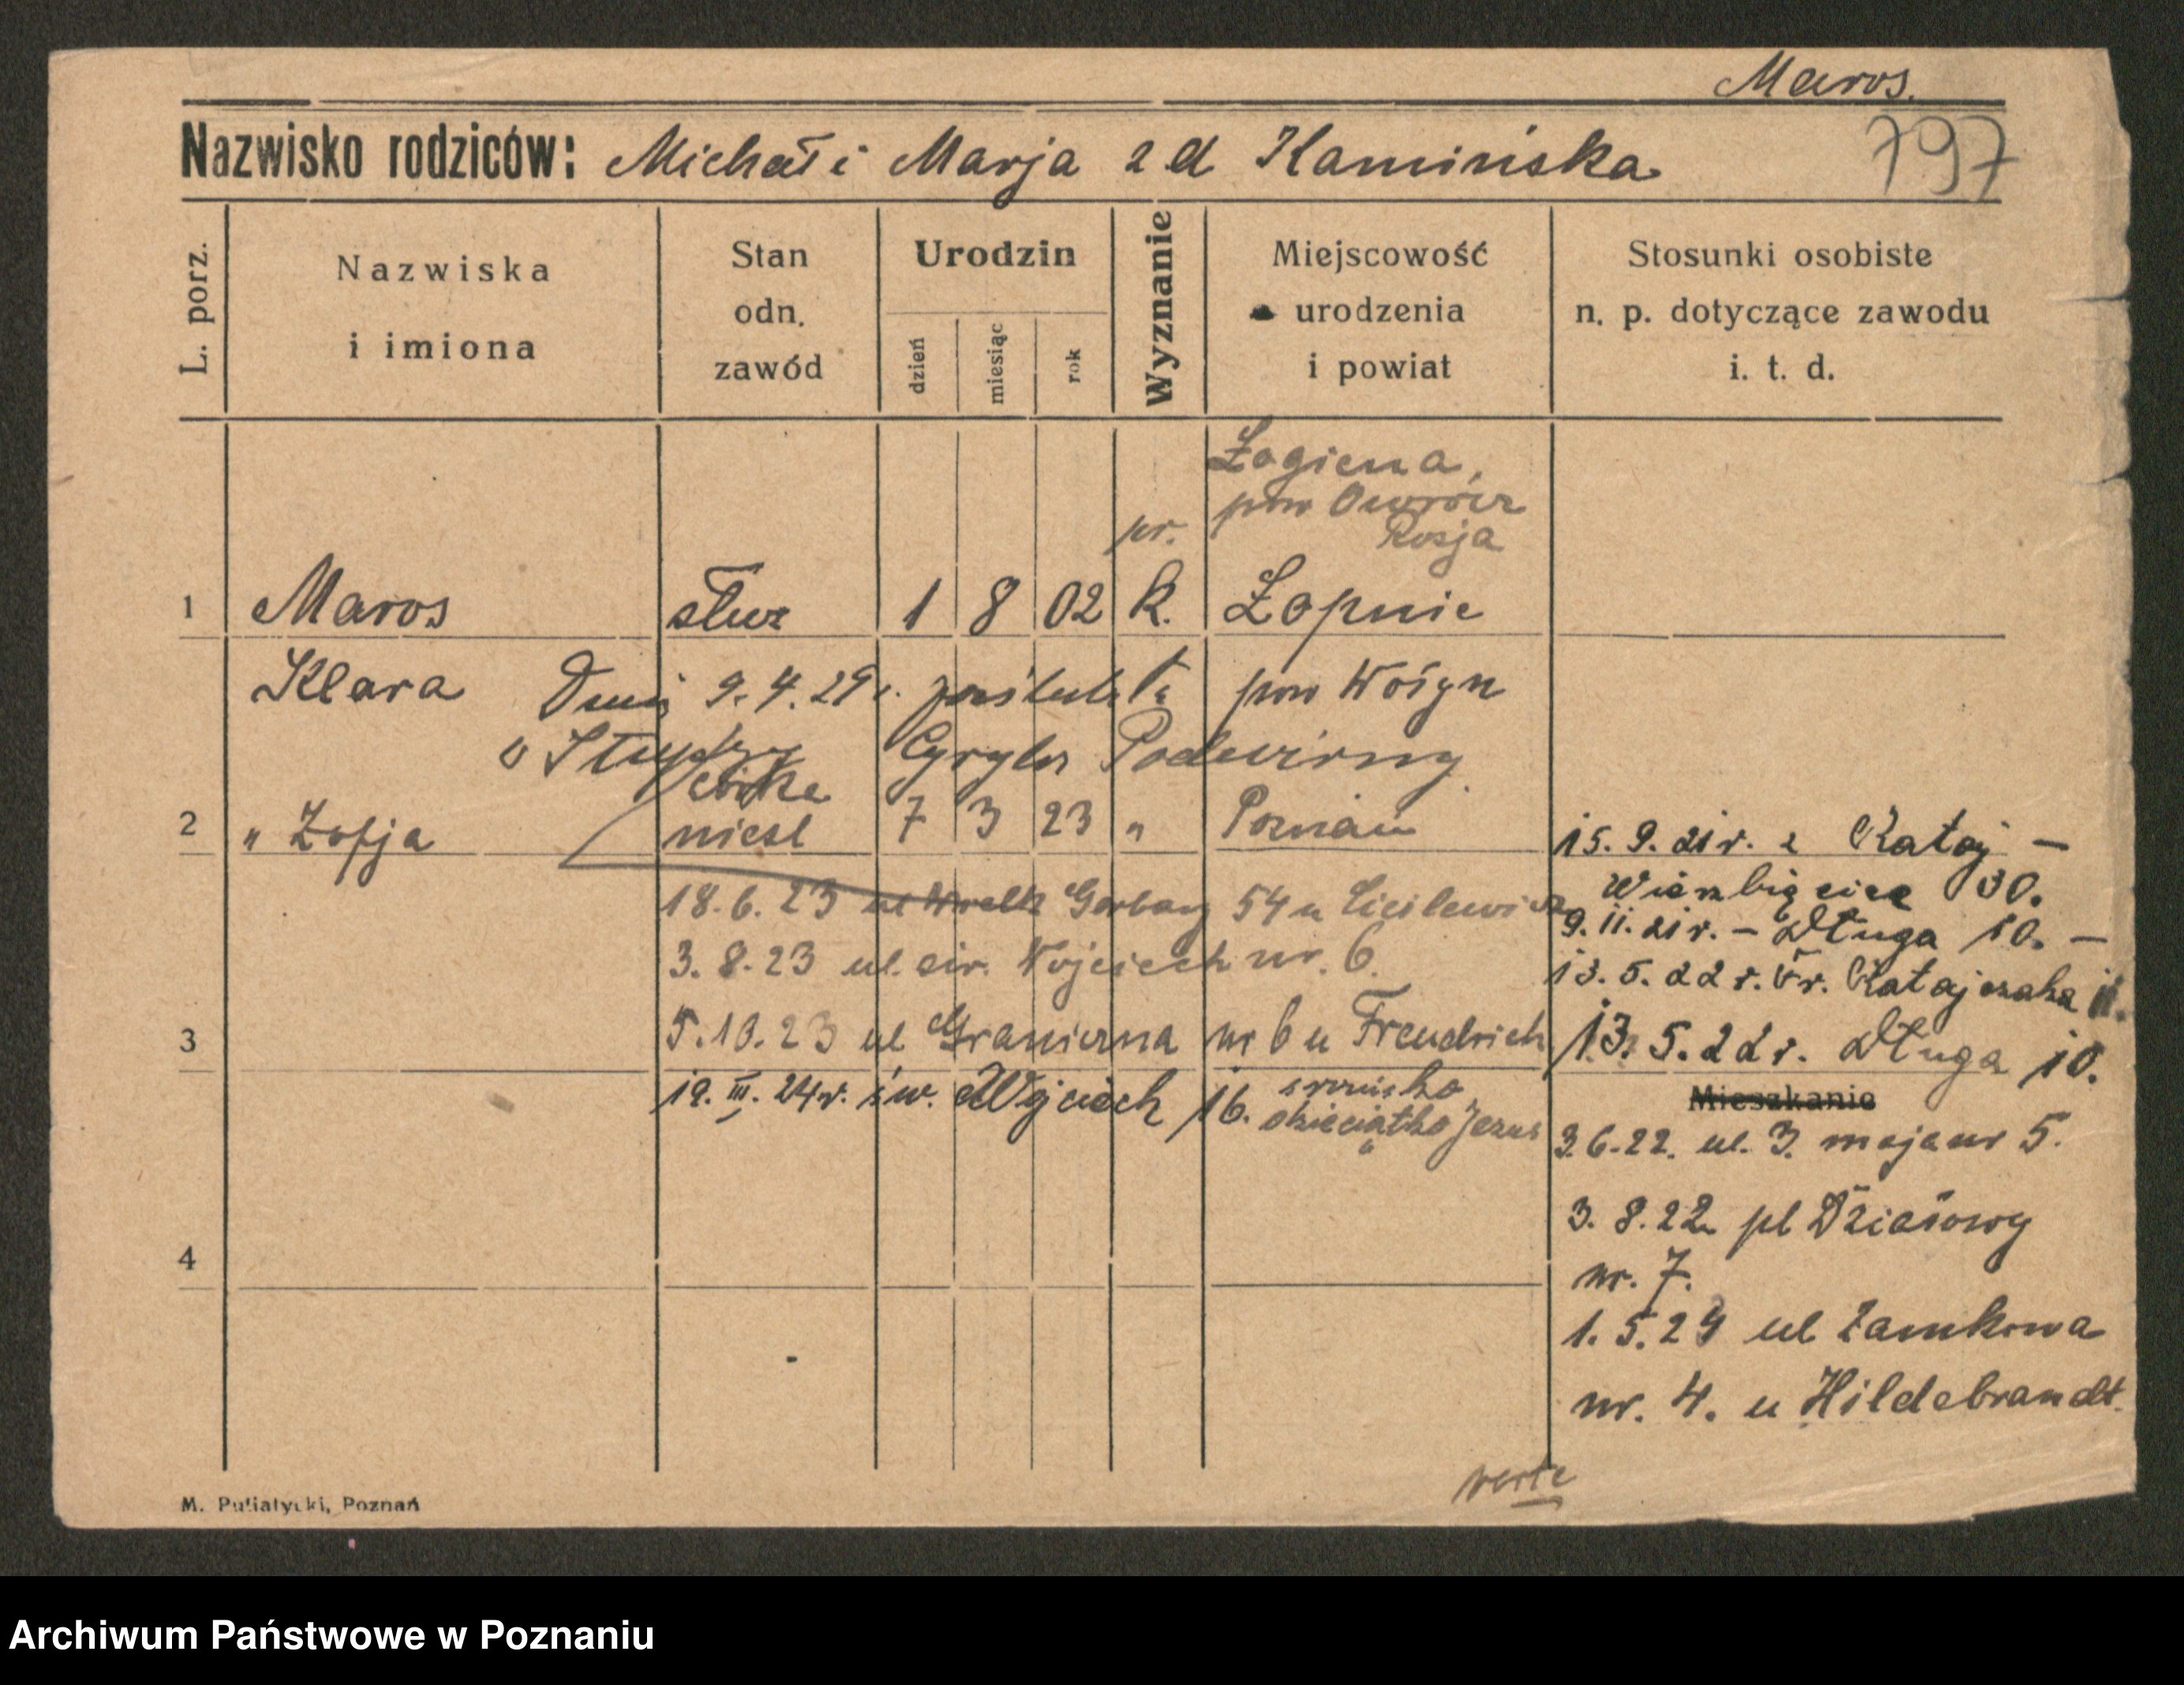 Maros.
Nazwisko rodziców: Michał i Marja z d Kamińska
797
L. porz.
Nazwiska
i imiona
Stan
odn.
zawód
Urodzin
dzień
miesiąc
rok
Wyznanie
Miejscowość
urodzenia
i powiat
Stosunki osobiste
n. p. dotyczące zawodu
i. t. d.
Łogiena,
pow Owrócz
Rosja
pr.
1 Maros służ 1 8 02 k. Łopnie
Klara Dnia 9.4.29 r. poślubiła pow Wołyn
Cyryla Podwirny
córka
2 " Zofja niesl 7 3 23 " Poznań
18.6.23 ul Garbary 54 u
3.8.23 ul. św. Wojciech nr. 6.
3
5.10.23 ul Graniczna nr 6 u Freudrich
19. III. 24r. św. Wojciech 16. dzieciątka Jezus
4
15. 9. 21 r. z Rataj —
Wierzbięcice 30.
9. 11. 21 r. — Długa 10. —
13. 5. 22 r. Fr. Ratajczaka 11.
13. 5. 22 r. Długa 10.
Mieszkanie
3.6.22. ul. 3. maja nr 5.
3. 8.22 pl Działowy
nr. 7.
1. 5.24 ul Zamkowa
nr. 4. u Hildebrandt.
verte
M. Putiatycki, Poznań
Archiwum Państwowe w Poznaniu